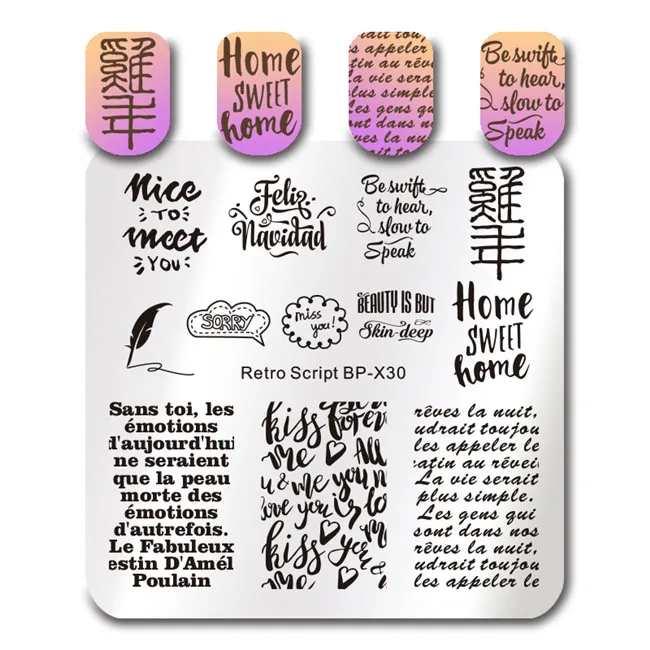 Home
SWEET
home
s appeler
tin au rêve
a vie sera
lus simple.
Les gens qu
ont dans n
Be swift
to hear,
slow to
Speak
Nice
TO
meet
YOU
Feliz
Navidad
Be swift
to hear,
slow to
Speak
SORRY
miss
you!
BEAUTY IS BUT
Skin-deep
Home
SWEET
home
Retro Script BP-X30
Sans toi, les
émotions
d'aujourd'hui
ne seraient
que la peau
morte des
émotions
d'autrefois.
Le Fabuleux
estin D'Amél
Poulain
kiss forever
me All
u & me you m
love you is lo
kiss you &
me
rêves la nuit,
udrait toujou
les appeler le
atin au révei
La vie serait
plus simple.
Les gens qui
sont dans nos
rêves la nuit,
udrait toujou
les appeler le